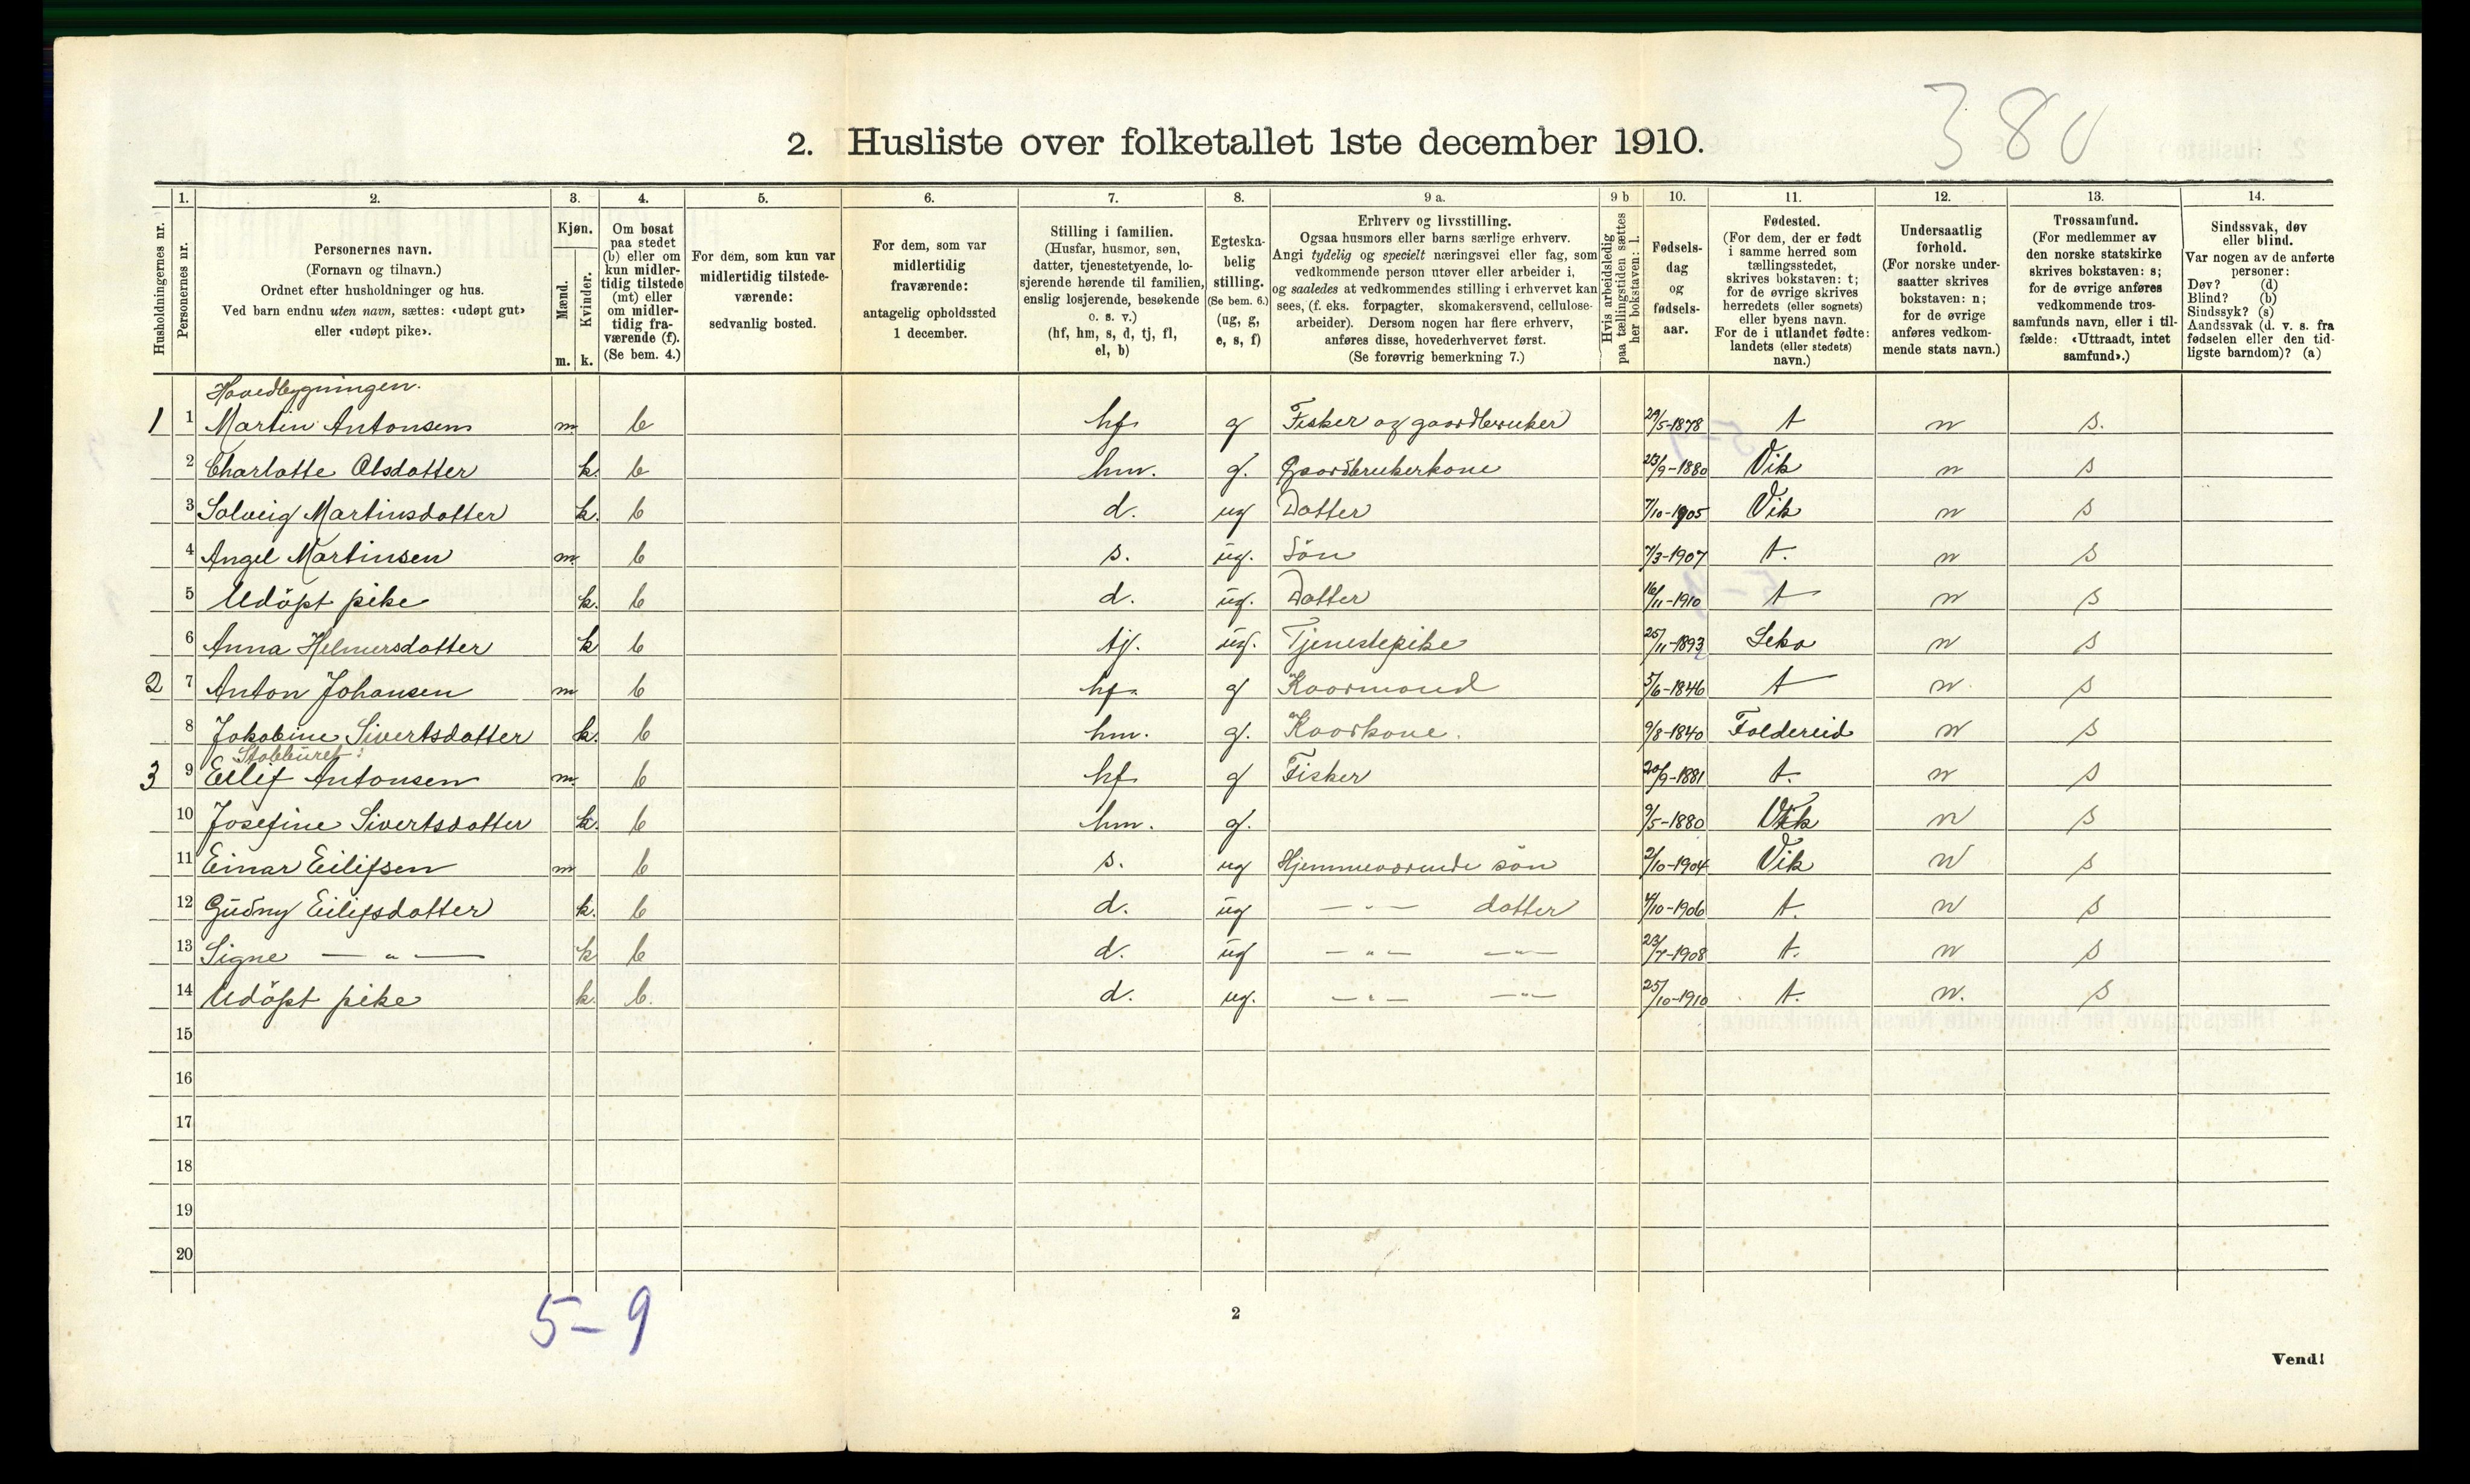 380
2. Husliste over folketallet 1ste december 1910.
Husholdningernes nr.
1. Personernes nr.
2. Personernes navn. (Fornavn og tilnavn.) Ordnet efter husholdninger og hus. Ved barn endnu uten navn, sættes: «udøpt gut» eller «udøpt pike».
3. Kjøn. Mænd. m. Kvinder. k.
4. Om bosat paa stedet (b) eller om kun midlertidig tilstede (mt) eller om midlertidig fraværende (f). (Se bem. 4.)
5. For dem, som kun var midlertidig tilstedeværende: sedvanlig bosted.
6. For dem, som var midlertidig fraværende: antagelig opholdssted 1 december.
7. Stilling i familien. (Husfar, husmor, søn, datter, tjenestetyende, losjerende hørende til familien, enslig losjerende, besøkende o. s. v.) (hf, hm, s, d, tj, fl, el, b)
8. Egteskabelig stilling. (Se bem. 6.) (ug, g, e, s, f)
9 a. Erhverv og livsstilling. Ogsaa husmors eller barns særlige erhverv. Angi tydelig og specielt næringsvei eller fag, som vedkommende person utøver eller arbeider i, og saaledes at vedkommendes stilling i erhvervet kan sees, (f. eks. forpagter, skomakersvend, cellulosearbeider). Dersom nogen har flere erhverv, anføres disse, hovederhvervet først. (Se forøvrig bemerkning 7.)
9 b Hvis arbeidsledig paa tællingstiden sættes her bokstaven: l.
10. Fødselsdag og fødselsaar.
11. Fødested. (For dem, der er født i samme herred som tællingsstedet, skrives bokstaven: t; for de øvrige skrives herredets (eller sognets) eller byens navn. For de i utlandet fødte: landets (eller stedets) navn.)
12. Undersaatlig forhold. (For norske undersaatter skrives bokstaven: n; for de øvrige anføres vedkommende stats navn.)
13. Trossamfund. (For medlemmer av den norske statskirke skrives bokstaven: s; for de øvrige anføres vedkommende trossamfunds navn, eller i tilfælde: «Uttraadt, intet samfund».)
14. Sindssvak, døv eller blind. Var nogen av de anførte personer: Døv? (d) Blind? (b) Sindssyk? (s) Aandssvak (d. v. s. fra fødselen eller den tidligste barndom)? (a)
Hovedbygningen.
1 1 Martin Antonsen m. b hf. g Fisker og gaardbruker 29/5-1878 t n s.
2 Charlotte Olsdatter k. b hm. g. Gaardbrukerkone 23/9-1880 Vik n s
3 Solveig Martinsdatter k. b d. ug Datter 7/10-1905 Vik n s
4 Angel Martinsen m. b s. ug. Sön 7/3-1907 t. n s
5 Udöpt pike k. b d. ug. Datter 16/11-1910 t n s
6 Anna Helmersdatter k b tj. ug. Tjenestepike 25/11-1893 Leka n s
2 7 Anton Johansen m b hf. g Kaarmand 5/6-1846 t n. s
8 Jakobine Sivertsdatter k. b hm. g. Kaarkone. 9/8-1840 Foldereid n s
Stabburet:
3 9 Eilif Antonsen m. b hf g Fisker 20/9-1881 t. n s
10 Josefine Sivertsdatter k. b hm. g. 9/5-1880 Vik n s
11 Einar Eilifsen m b s. ug Hjemmeværende sön 2/10-1904 Vik n s
12 Gudny Eilifsdatter k. b d. ug — " — datter 4/10-1906 t. n s
13 Signe — " — k b d. ug — " — — " — 23/7-1908 t. n s
14 Udöpt pike k. b. d. ug. — " — — " — 25/10-1910 t. n. s
15
16
17
18
19
20
5-9
2
Vend!